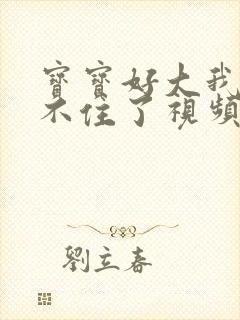 寶寶好大我
不住了視頻
劉立春